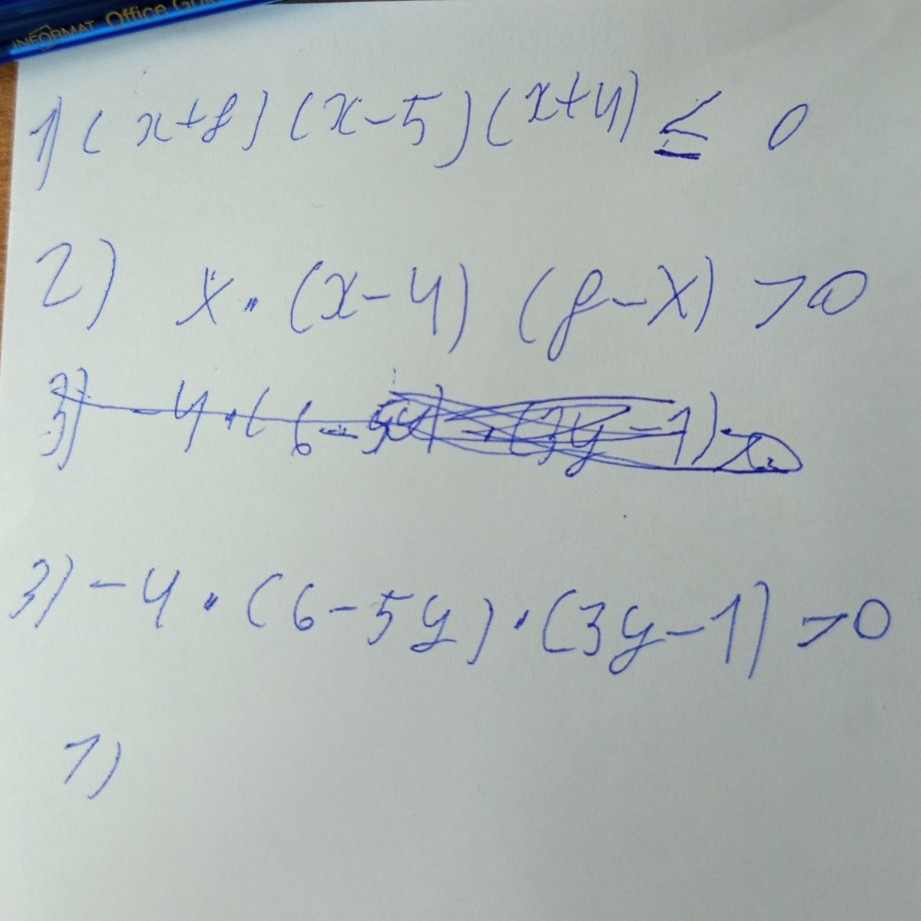 INFORMAT Office
1) (x+8) (x-5) (x+4) ≤ 0
2) x · (x-4) (8-x) >0
3) -4 · (6-5y) · (3y-1) >0
3) -4 · (6-5y) · (3y-1) >0
1)